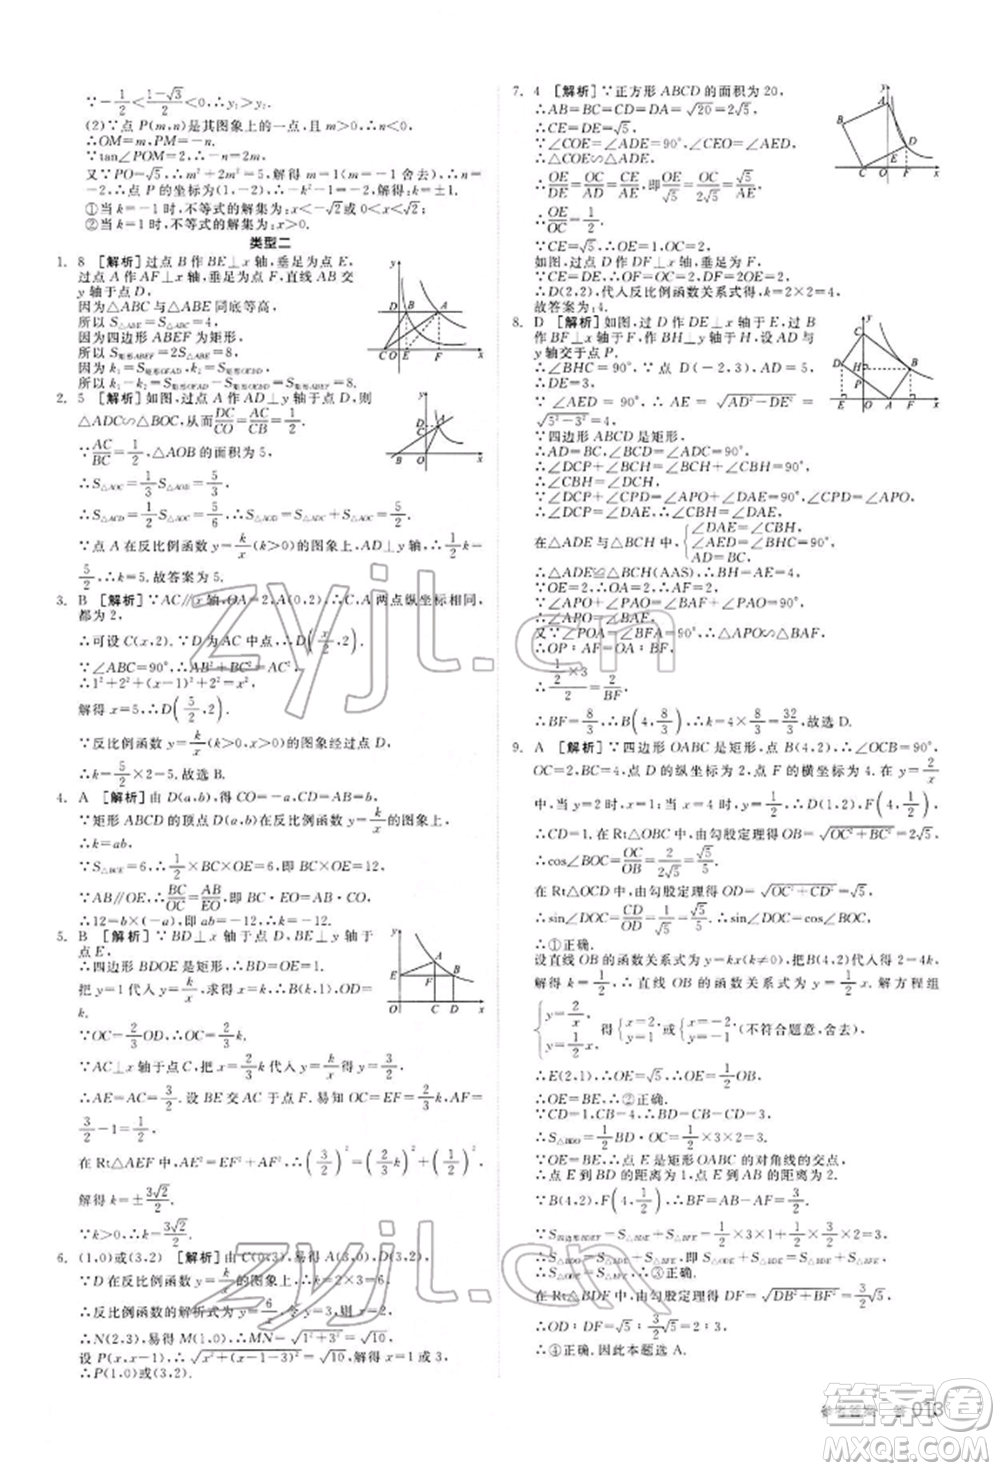 ∵-1/2<(1-√3)/2<1/2,∴y₁>y₂.
(2)∵点 P(m,n)是其图象上的一点,且 m>0,n<0,
∴OM=m,PM=-n.
∵tan∠POM=2,∴-n/m=2,∴-n=2m.
又∵PO=√5,∴m²+n²=5,解得 m=1(m=-1 舍去),n=
-2,∴点 P 的坐标为(1,-2),∴-k²-1=-2,解得 k=±1.
①当 k=-1 时,不等式的解集为:x<-√2/2或 0<x<√2/2;
②当 k=1 时,不等式的解集为:x>0.
类型二
1. 8 [解析]过点 B 作 BE⊥x 轴,垂足为点 E,
过点 A 作 AF⊥x 轴,垂足为点 F,直线 AB 交
y 轴于点 D,
因为△ABC 与△ABE 同底等高,
所以 S△ABE=S△ABC=4,
因为四边形 ABEF 为矩形,
所以 S矩形ABEF=2S△ABE=8,
因为 k₁=S矩形OFAD,k₂=S矩形OEBD,
所以 k₁-k₂=S矩形OFAD-S矩形OEBD=8.
2. 5 [解析]如图,过点 A 作 AD⊥y 轴,则
△ADC∽△BOC,从而DC/CO=AC/CB.
∵AC/BC=1/2,△AOB 的面积为 5,
∴S△AOC=1/3S△AOB=5/3,
∴S△ACD=1/2S△AOC=5/6,∴S△AOD=S△ADC+S△AOC=5/2.
∵点 A 在反比例函数 y=k/x(k>0)的图象上,AD⊥y 轴,∴1/2k=
5/2,∴k=5.故答案为 5.
3. B [解析]∵AC∥x 轴,OA=2,OB=1,∴C,A 两点纵坐标相同,
都为 2,
∴可设 C(x,2).∵D 为 AC 中点,∴D(x/2,2).
∵∠ABC=90°,∴AB²+BC²=AC²,
∴1²+2²+(x-1)²+2²=x²,
解得 x=5,∴D(5/2,2).
∵反比例函数 y=k/x的图象经过点 D,
∴k=5/2×2=5.故选 B.
4. A [解析]由 D(a,b),得 CO=-a,CD=AB=b,
∵矩形 ABCD 的顶点 D(a,b)在反比例函数 y=k/x的图象上,
∴k=ab,
∵S△BCE=6,∴1/2×BC×OE=6,即 BC×OE=12.
∵AB∥OE,∴BC/OC=AB/EO,即 BC·EO=AB·CO,
∴12=b×(-a),即 ab=-12,∴k=-12.故选 A.
5. B [解析]∵BD⊥x 轴于点 D,BE⊥y 轴于
点 E,
∴四边形 BDOE 是矩形,∴BD=OE=1.
把 y=1 代入 y=k/x,求得 x=k,∴B(k,1),∴OD=
k.
∵OC=2/3OD,∴OC=2/3k.
∵AC⊥x 轴于点 C,把 x=2/3k 代入 y=k/x得,y=3/2,
∴AE=AC=3/2.设 BE 交AC 于点 F.易知 OC=EF=2/3k,AF=
3/2-1=1/2.
在 Rt△AEF 中,AE²=EF²+AF²,∴(3/2)²=(2/3k)²+(1/2)²,
解得 k=±3√2/2.
∵k>0,∴k=3√2/2.故选 B.
6. (1,0)或(3,2) [解析]由 C(0,3),易得 A(3,0),D(3,2),
∵D 在反比例函数 y=k/x的图象上,∴k=2×3=6,
∴反比例函数的解析式为 y=6/x,令 y=3,则 x=2,
∴N(2,3),易得 M(1,0),∴MN=√(1²+3²)=√10,
设 P(x,x-1),∴√(x²+(x-1-3)²)=√10,解得 x=1 或 3,
∴P(1,0)或(3,2).
7. 4 [解析]∵正方形 ABCD 的面积为 20,
∴AB=BC=CD=DA=√20=2√5,
∴CE=DE=√5,
∵∠COE=∠ADE=90°,∠CEO=∠AED,
∴△COE∽△ADE,
∴OE/DE=OC/AD=CE/AE,即OE/√5=OC/2√5=√5/5,
∴OE=1,OC=2,
∴OE/OC=1/2.
∵CE=√5,
如图,过点 D 作 DF⊥x 轴,垂足为 F,
∵CE=DE,∴OF=OC=2,DF=2OE=2,
∴D(2,2),代入反比例函数关系式得,k=2×2=4,
故答案为:4.
8. D [解析]如图,过 D 作 DE⊥x 轴于 E,过 B
作 BF⊥x 轴于 F,BH⊥y 轴于 H,设 AB 与
y轴交于点 P.
∴∠BHC=90°.∵点 D(-2,3),AD=5,
∴DE=3,
∵∠AED=90°,∴AE=√(AD²-DE²)=
√(5²-3²)=4.
∵四边形 ABCD 是矩形,
∴AD=BC,∴∠BCD=∠ADC=90°,
∴∠DCP+∠BCH=∠BCH+∠CBH=90°,
∴∠CBH=∠DCP.
∵∠DCP+∠CPD=∠APO+∠DAE=90°,∠CPD=∠APO,
∴∠DCP=∠DAE,∴∠CBH=∠DAE,
在△ADE 与△BCH 中,{∠DAE=∠CBH, ∠AED=∠BHC, AD=BC,
∴△ADE≌△BCH(AAS),∴BH=AE=4.
∵OE=2,∴OA=2,∴AF=2.
∵∠APO+∠PAO=∠BAF+∠PAO=90°,
∴∠APO=∠BAF,
又∵∠POA=∠BFA=90°,∴△APO∽△BAF,
∴OP/AF=OA/BF,
∴(1/2×3)/2=2/BF,
∴BF=8/3,∴B(4,8/3),∴k=4×8/3=32/3,故选 D.
9. A [解析]∵四边形 OABC 是矩形,点 B(4,2),∴∠OCB=90°,
OC=2,BC=4,点 D 的纵坐标为 2,点 F 的横坐标为 4.在 y=2/x
中,当 y=2 时,x=1,当 x=4 时,y=1/2,∴D(1,2),F(4,1/2),
∴CD=1.在 Rt△OBC 中,由勾股定理得 OB=√(OC²+BC²)=2√5,
∴cos∠BOC=OC/OB=2/2√5=√5/5.
在 Rt△OCD 中,由勾股定理得 OD=√(OC²+CD²)=√5,
∴sin∠DOC=CD/OD=1/√5=√5/5,∴sin∠DOC=cos∠BOC,
∴①正确.
设直线 OB 的函数关系式为 y=kx(k≠0),把点 B(4,2)代入,
解得 k=1/2,∴直线 OB 的函数关系式为 y=1/2x.解方程组
{y=2/x, y=1/2x, 得{x=2, y=1或{x=-2, y=-1(不符合题意,舍去),
∴E(2,1),∴OE=√5,∴OE=1/2OB,
∴OE=BE,∴②正确.
∵CD=1,BC=4,∴BD=3,
∴S△BDO=1/2BD·OC=1/2×3×2=3.
∵OE=BE,∴点 E 是矩形 OABC 的对角线的交点,
∴点 E 到 BD,BF 的距离分别为 1,2.
∵B(4,2),F(4,1/2),∴BF=AB-AF=3/2,
∴④正确.因此本题选 A.
参考答案 答 013
zyjl.cn
zyjl.cn
答案圈
MXQE.COM